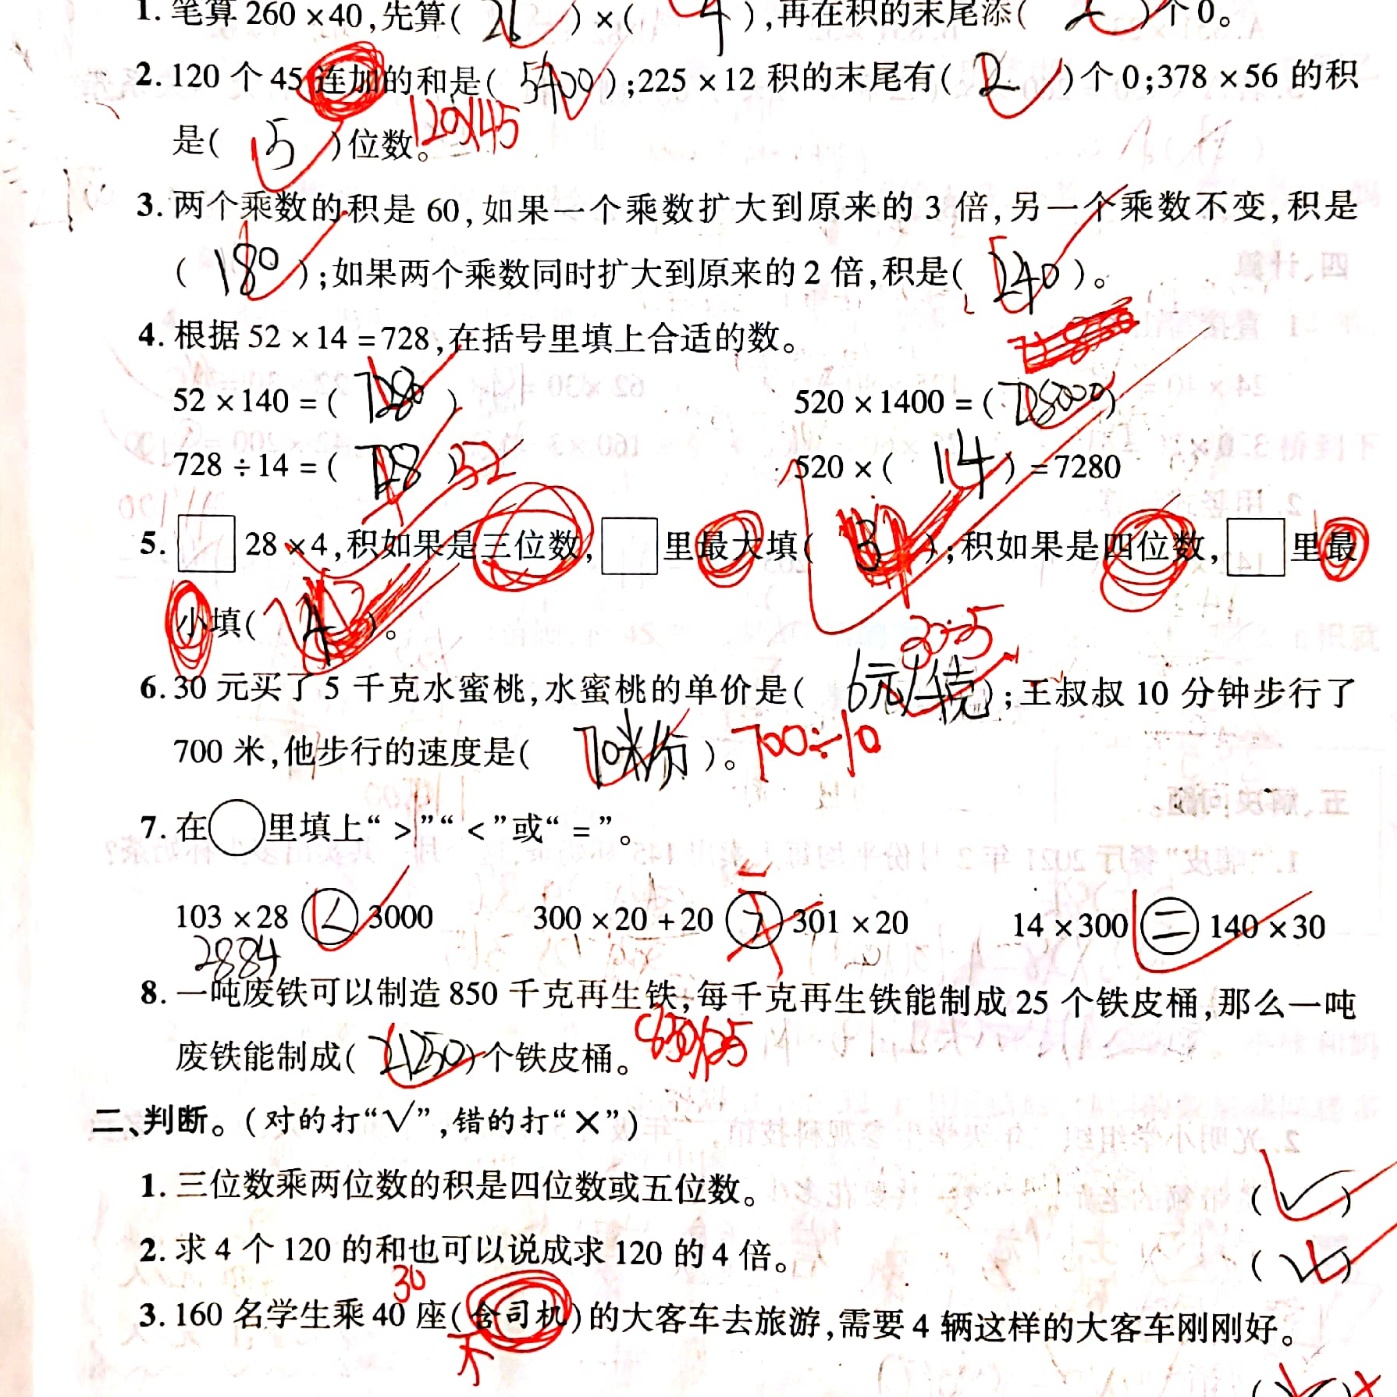 1. 笔算 260 × 40,先算( 26 ) × ( 4 ),再在积的末尾添( 2 )个 0。
2. 120 个 45 连加的和是( 5400 );225 × 12 积的末尾有( 2 )个 0;378 × 56 的积
是( 5 )位数。 120×45
3. 两个乘数的积是 60,如果一个乘数扩大到原来的 3 倍,另一个乘数不变,积是
( 180 );如果两个乘数同时扩大到原来的 2 倍,积是( 240 )。
4. 根据 52 × 14 = 728,在括号里填上合适的数。
52 × 140 = ( 7280 ) 520 × 1400 = ( 728000 )
728 ÷ 14 = ( 728 ) 52 520 × ( 14 ) = 7280
5. □ 28 × 4,积如果是三位数,□里最大填( 3 );积如果是四位数,□里最
小填( )。
30÷5
6. 30 元买了 5 千克水蜜桃,水蜜桃的单价是( 6元/千克 );王叔叔 10 分钟步行了
700 米,他步行的速度是( 70米/分 )。 700÷10
7. 在○里填上“ > ”“ < ”或“ = ”。
103 × 28 < 3000 300 × 20 + 20 > 301 × 20 14 × 300 = 140 × 30
2884
8. 一吨废铁可以制造 850 千克再生铁,每千克再生铁能制成 25 个铁皮桶,那么一吨
废铁能制成( 21250 )个铁皮桶。 850×25
二、判断。(对的打“√”,错的打“×”)
1. 三位数乘两位数的积是四位数或五位数。 ( √ )
2. 求 4 个 120 的和也可以说成求 120 的 4 倍。 ( √ )
30
3. 160 名学生乘 40 座(含司机)的大客车去旅游,需要 4 辆这样的大客车刚刚好。
不